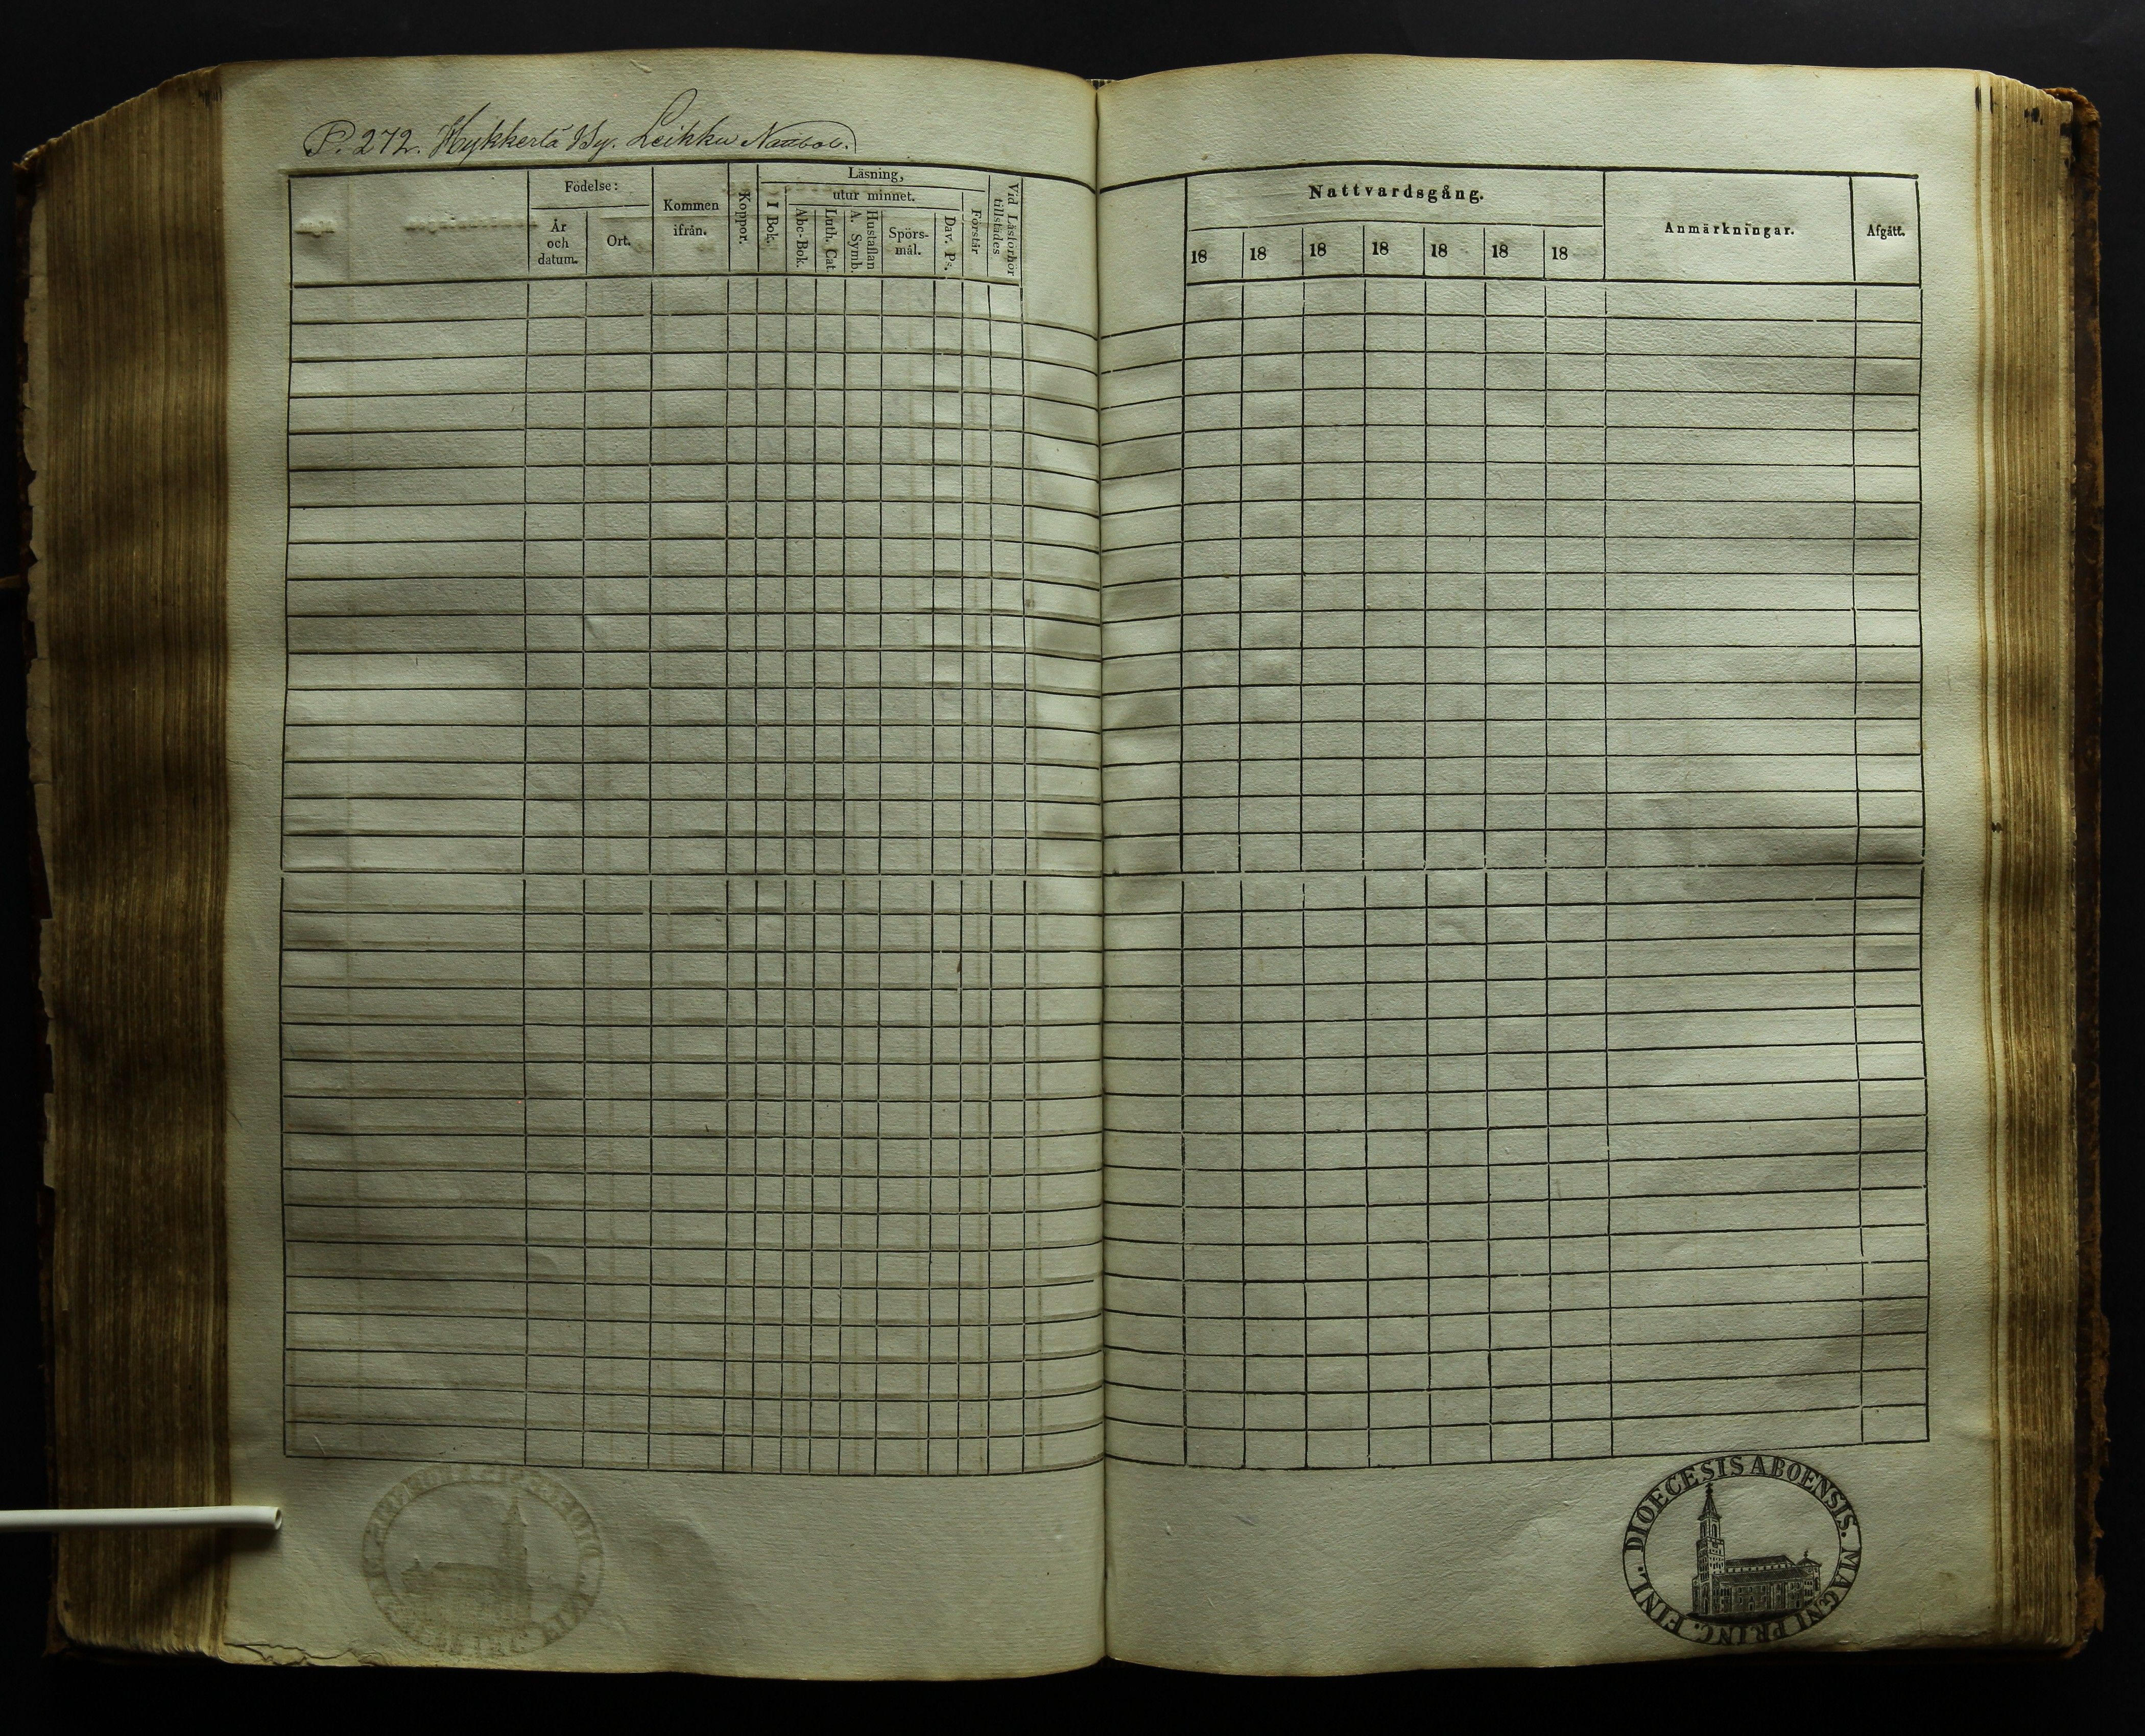 P. 272. Hykkerlä By. Leikku
Födelse:
År
och
datum.
Ort.
Kommen
ifrån.
Koppor.
Läsning,
I Bok.
utur minnet.
Abc-Bok.
Luth. Cat.
Hustaflan
A. Symb.
Spörs-
mål.
Dav. Ps.
Förstår
Vid Läsförhör
tillstädes
Nattvardsgång.
18 18 18 18 18 18 18
Anmärkningar.
Afgått.
DIOECESIS ABOENSIS. MAGNI PRINC. FINL.